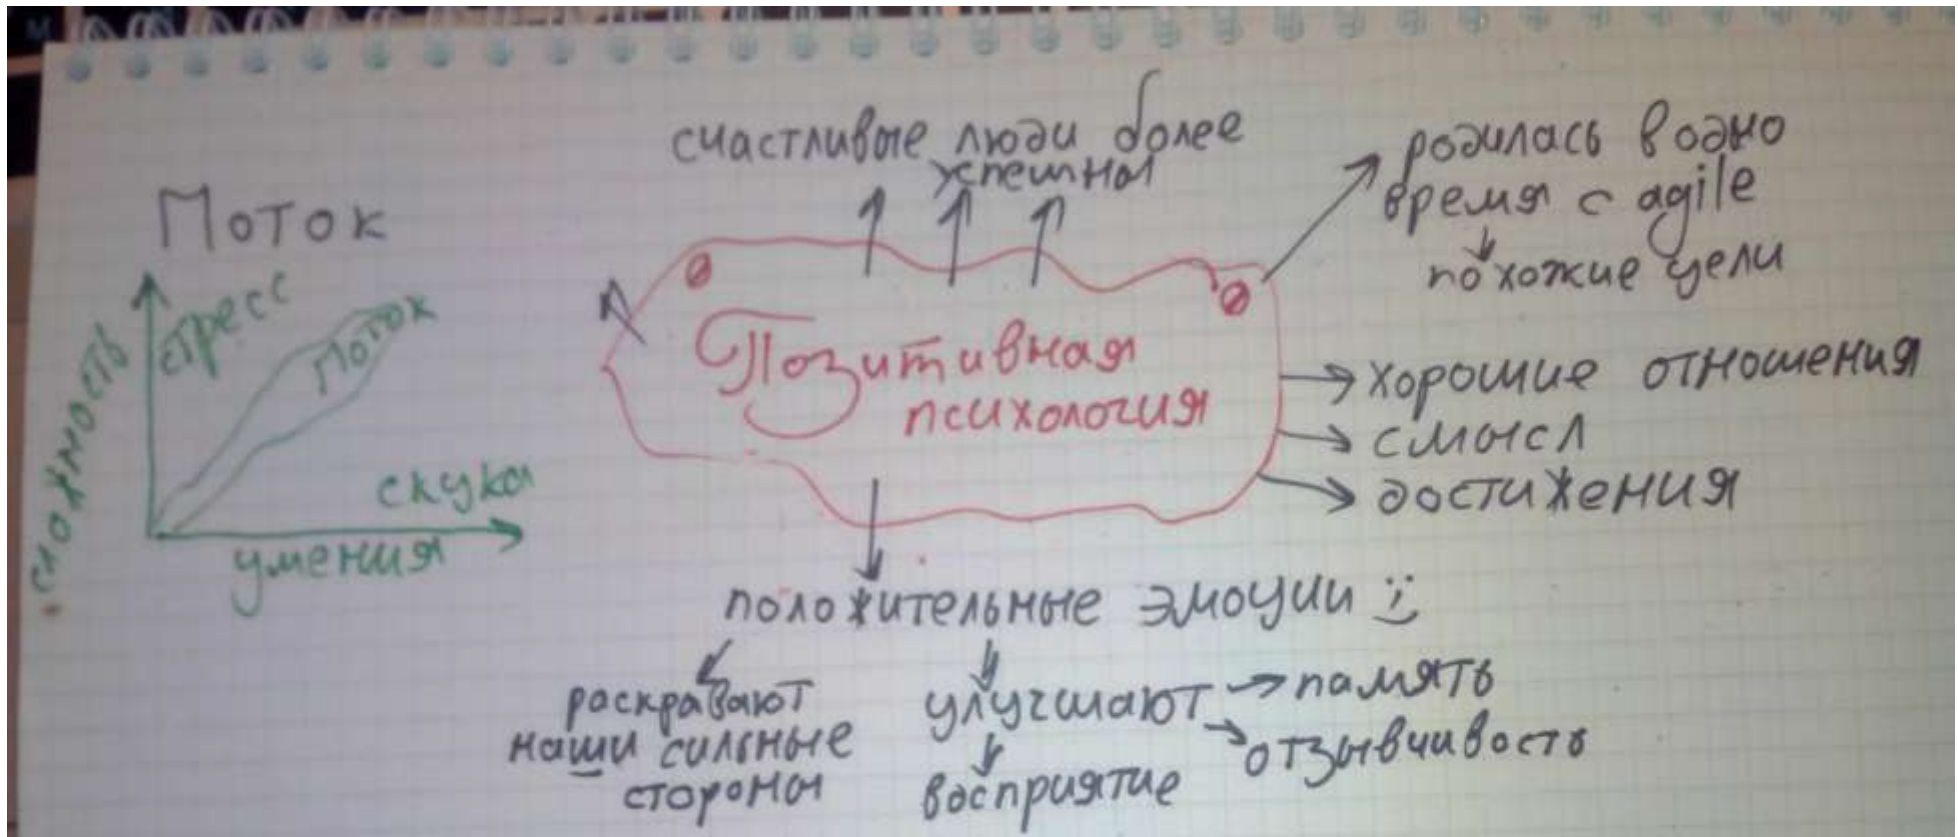 Поток
сложность
стресс
поток
скука
умения
счастливые люди более
успешны
родилась в одно
время с agile
похожие цели
Позитивная
психология
хорошие отношения
смысл
достижения
положительные эмоции
раскравают
наши сильные
стороны
улучшают
память
отзывчивость
восприятие